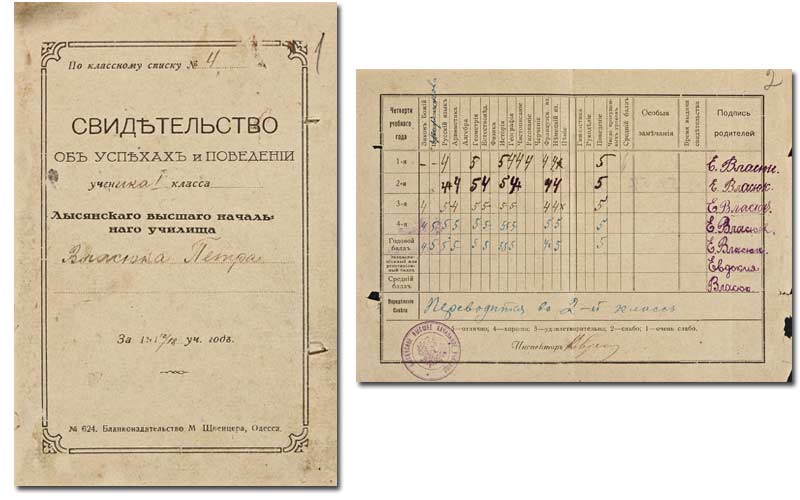 1
По классному списку № 4
СВИДѢТЕЛЬСТВО
ОБЪ УСПѢХАХЪ и ПОВЕДЕНІИ
ученика I класса
Лысянскаго высшаго началь-
наго училища
Власюка Петра
За 1917/18 уч. годъ.
№ 624. Бланкоиздательство М. Швенцера, Одесса.
2
Четверти учебнаго года
Законъ Божій
Русскій языкъ
Ариѳметика
Алгебра
Геометрія
Естествовѣд.
Физика
Исторія
Географія
Чистописаніе
Рисованіе
Черченіе
Французск. яз.
Нѣмецкій яз.
Пѣніе
Гимнастика
Рукодѣліе
Поведеніе
Средній баллъ
Особыя замѣчанія
Время выдачи свидѣтельства
Подпись родителей
1-я - - 4 5 5 4 4 4 4 4 5 Е. Власюк.
2-я 4 4 5 4 5 4 4 4 5 Е. Власюк.
3-я 4 5 4 5 5 5 5 4 4 5 Е. Власюк.
4-я 4 5 5 5 5 5 5 5 5 5 5 5 Е. Власюк.
Годовой баллъ 4 5 5 5 5 5 5 5 5 4 5 5 Е. Власюк.
Евдокия
Средній баллъ Власюк.
Опредѣленіе Совѣта Переводится во 2-й классъ
5—отлично; 4—хорошо; 3—удовлетворительно; 2—слабо; 1—очень слабо.
Инспекторъ